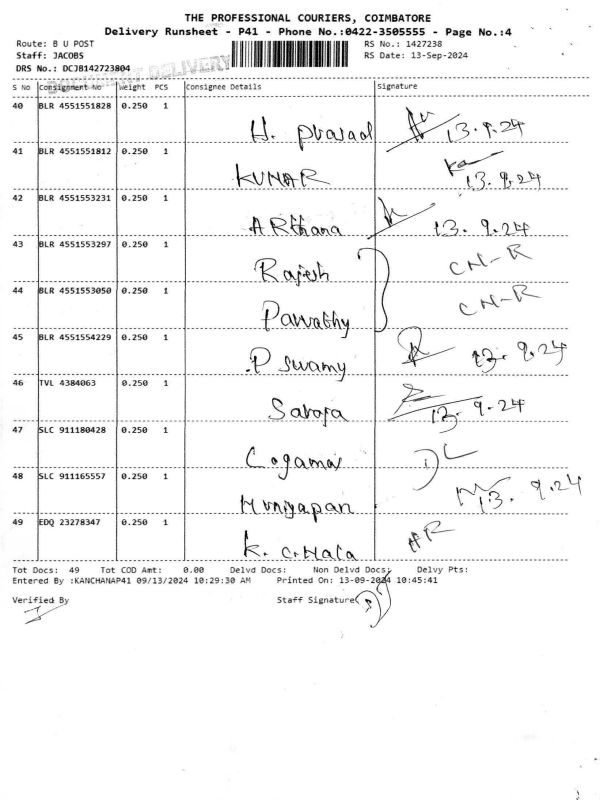 THE PROFESSIONAL COURIERS, COIMBATORE
Delivery Runsheet - P41 - Phone No.:0422-3505555 - Page No.:4
Route: B U POST RS No.: 1427238
Staff: JACOBS RS Date: 13-Sep-2024
DOCUMENT DELIVERY
DRS No.: DCJB142723804
S No Consignment No Weight PCS Consignee Details Signature
40 BLR 4551551828 0.250 1 H. Prasad 13.9.24
41 BLR 4551551812 0.250 1 KUMAR 13.9.24
42 BLR 4551553231 0.250 1 ARthana 13.9.24
43 BLR 4551553297 0.250 1 Rajesh CN-R
44 BLR 4551553050 0.250 1 Parvathy CN-R
45 BLR 4551554229 0.250 1 P swamy 13.9.24
46 TVL 4384063 0.250 1 Saroja 13.9.24
47 SLC 911180428 0.250 1 DL
48 SLC 911165557 0.250 1 Muniyapan 13.9.24
49 EDQ 23278347 0.250 1 K.
Tot Docs: 49 Tot COD Amt: 0.00 Delvd Docs: Non Delvd Docs: Delvy Pts:
Entered By :KANCHANAP41 09/13/2024 10:29:30 AM Printed On: 13-09-2024 10:45:41
Verified By Staff Signature